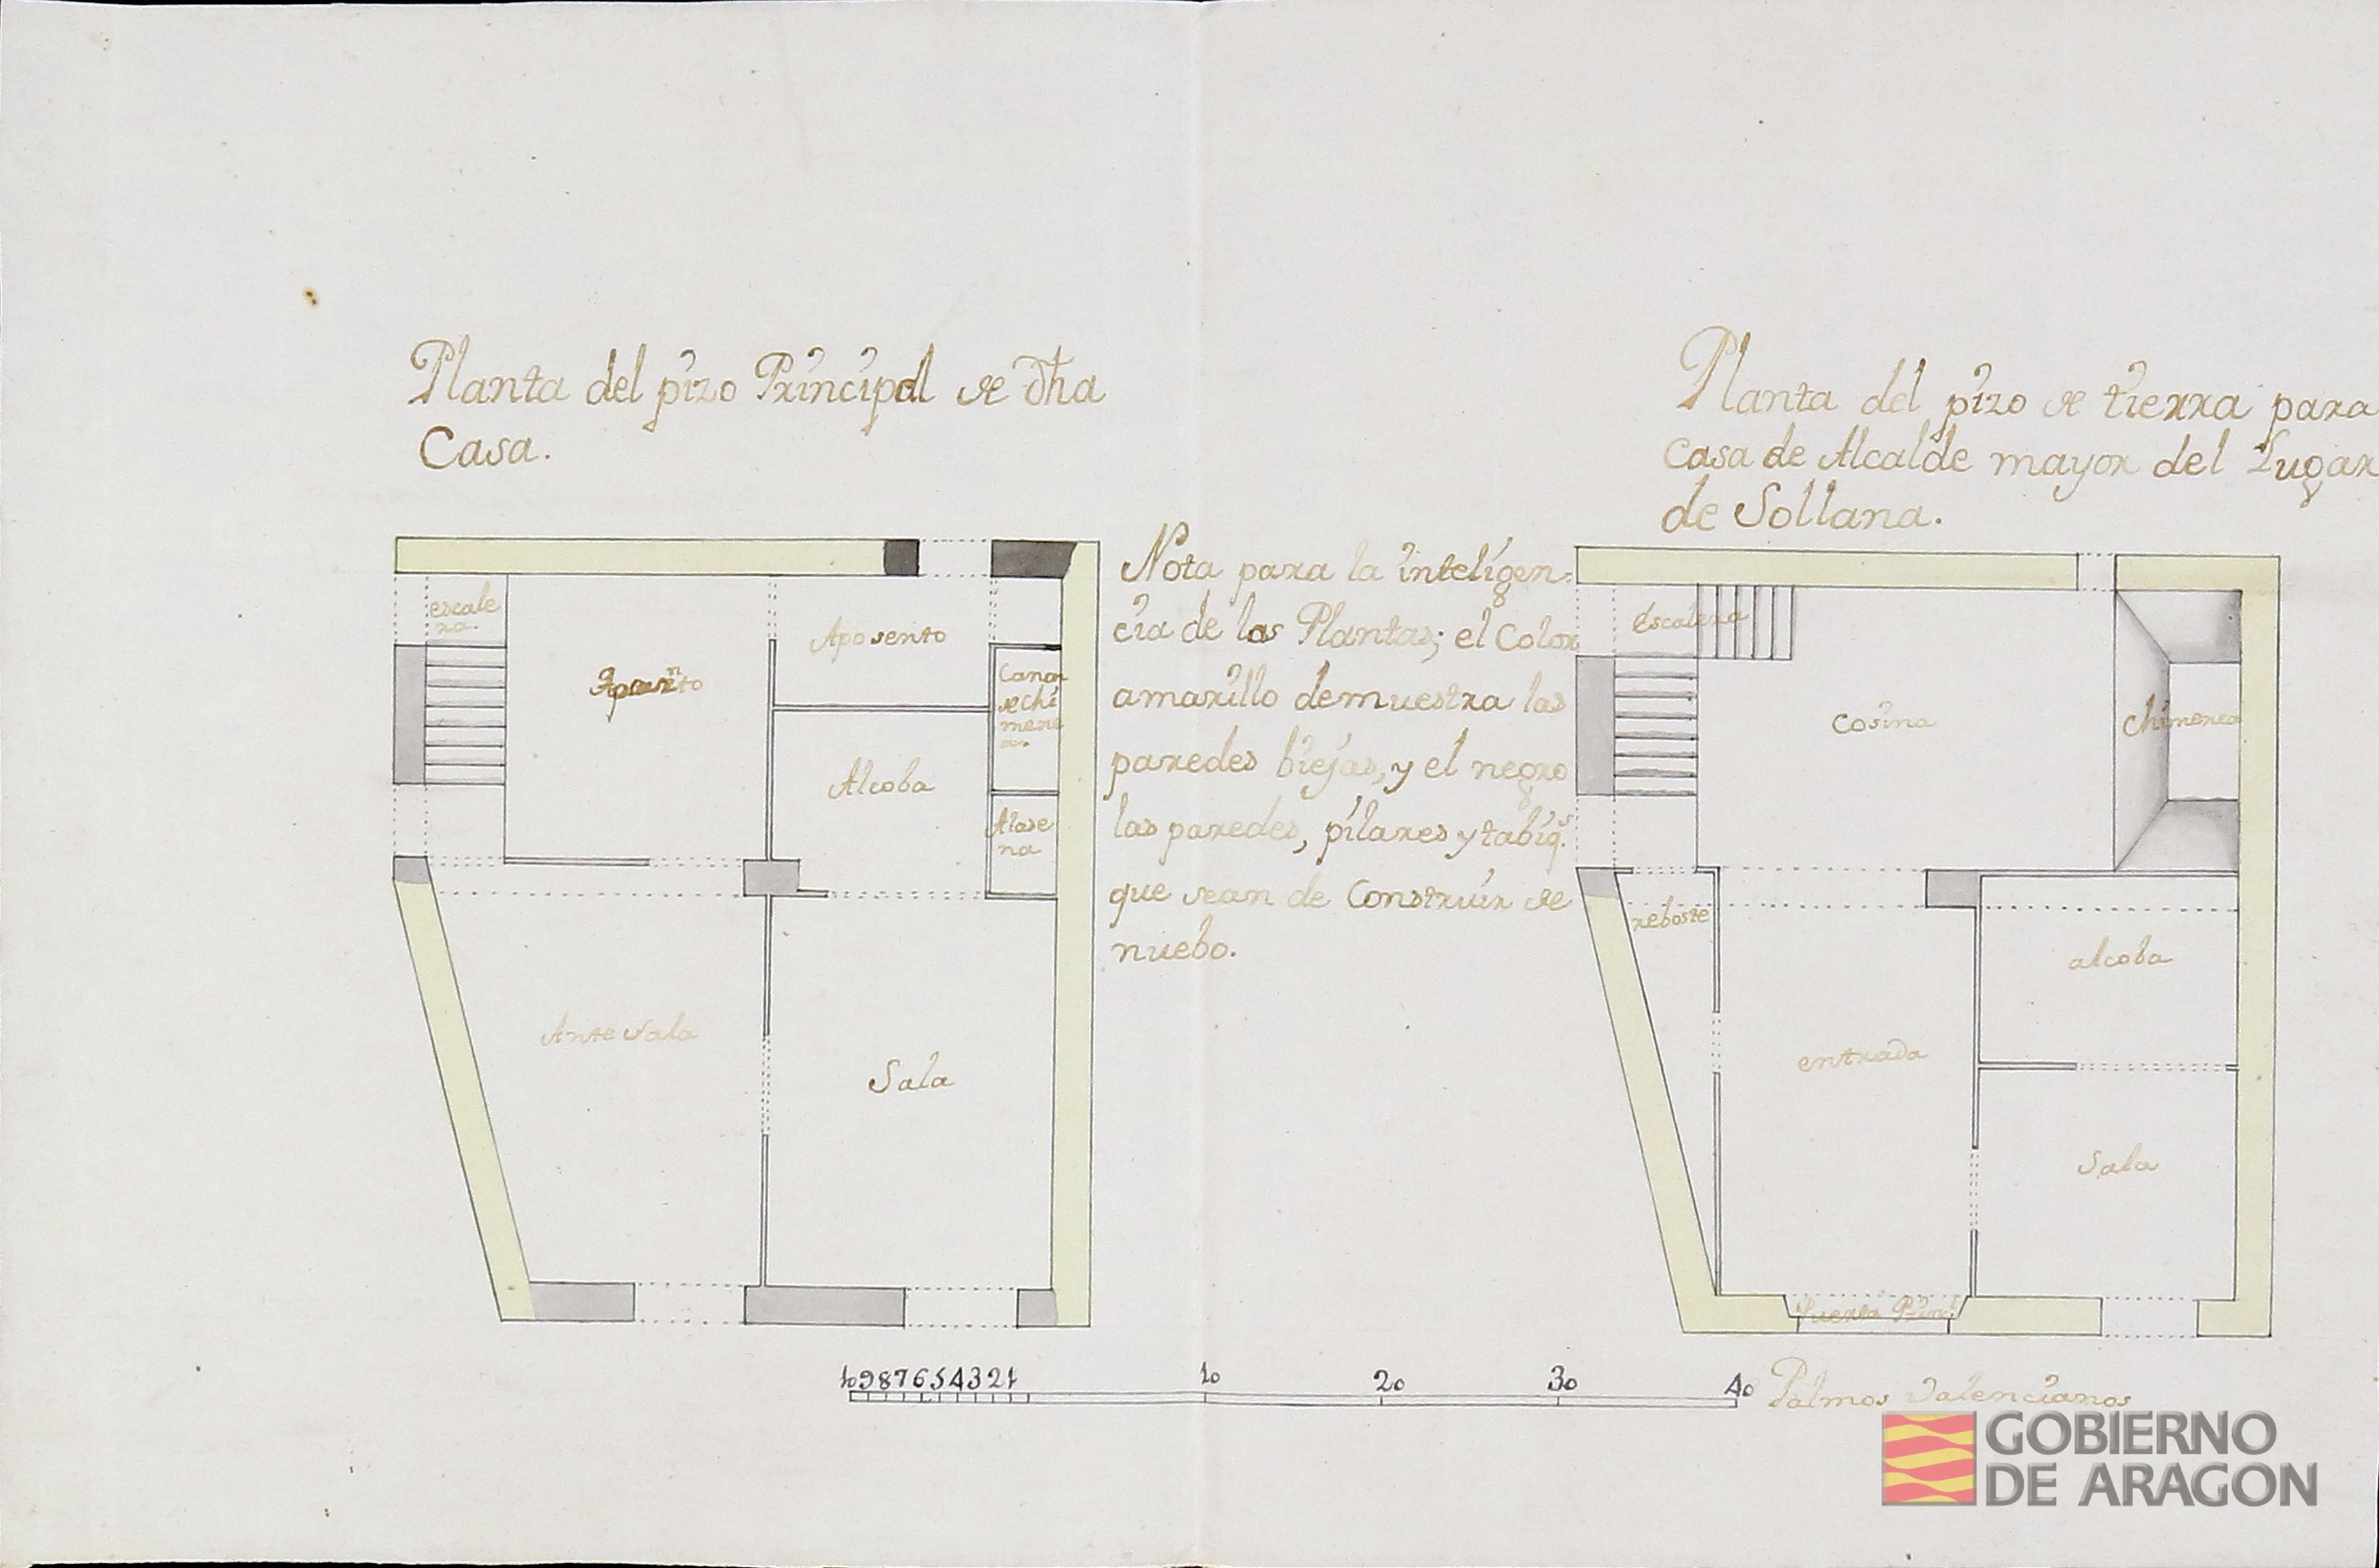 Planta del pizo Principal de dha
Casa.
escale
ra.
Aposento
Aposento
Alcoba
Canon
de chi
mene
a.
Alase
na
Ante Sala
Sala
Nota para la inteligen-
cia de las Plantas; el Color
amarillo demuestra las
paredes biejas, y el negro
las paredes, pilares y tabiq.s
que sean de Construir de
nuebo.
Planta del pizo de tierra para
Casa de Alcalde mayor del Lugar
de Sollana.
Escalera
Cosina
Chimenea
reboste
entrada
alcoba
Sala
Puerta Prinl
10 9 8 7 6 5 4 3 2 1 10 20 30 40 Palmos Valencianos
GOBIERNO
DE ARAGON